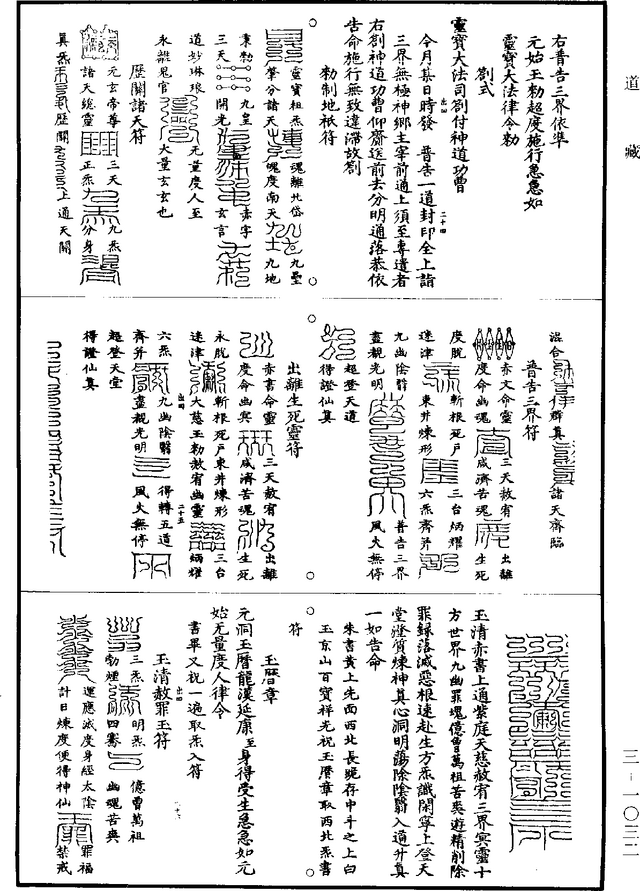 道藏
右普告三界依準
元始玉勑超度施行急急如
靈寶大法律令勑
劄式
靈寶大法司劄付神道功曹
今月某日時發 普告一道封印全上詣
三界無極神鄉主宰前通上須至專遣者
右劄神道功曹仰齎送前去分明通落恭依
告命施行無致違滯故劄
勑制地祇符
靈寶祖炁 魂離北岱 九壘
肇分諸天 魂度南天 九地
東勑 九皇 赤字
三天 開光 玄言
道妙琳琅 元量度人至
永離鬼官 大量玄玄也
歷關諸天符
元玄帝尊 三天 九炁
諸天總靈 正炁 分身
真炁 歷關 上通天關
混合 群真 諸天齊臨
普告三界符
赤文命靈 三天赦宥 出離
度命幽魂 咸濟苦魂 生死
度脫 斬根死戶 三台炳耀
迷津 東井煉形 六炁齊并
九幽陰翳 普告三界
盡覩光明 風火無停
超登天道
得證仙真
出離生死靈符
赤書命靈 三天赦宥 出離
度命幽冥 咸濟苦魂 生死
永脫 斬根死戶東井煉形 三台
迷津 大慈玉勑赦宥幽靈 炳耀
六炁 九幽陰翳 得轉五道
齊并 盡覩光明 風火無停
超登天堂
得證仙真
玉清赤書上通紫庭天慈赦宥三界冥靈十
方世界九幽罪魂億曾萬祖苦爽遊精削除
罪録落滅惡根速赴生方炁識開寧上登天
堂澄質煉神真心洞明蕩除陰翳入道升真
一如告命
朱書黄上先面西北長跪存中斗之上白
玉京山百寳祥光祝玉曆章取西北炁書
符
玉曆章
元洞玉曆龍漢延康至身得受生急急如元
始无量度人律令
書畢又祝一遍取炁入符
玉清赦罪玉符
三炁 明炁 億曾萬祖
勃煙 四騫 幽魂苦爽
運應滅度身經太陰 罪福
計日煉度便得神仙 禁戒
三一一〇三二